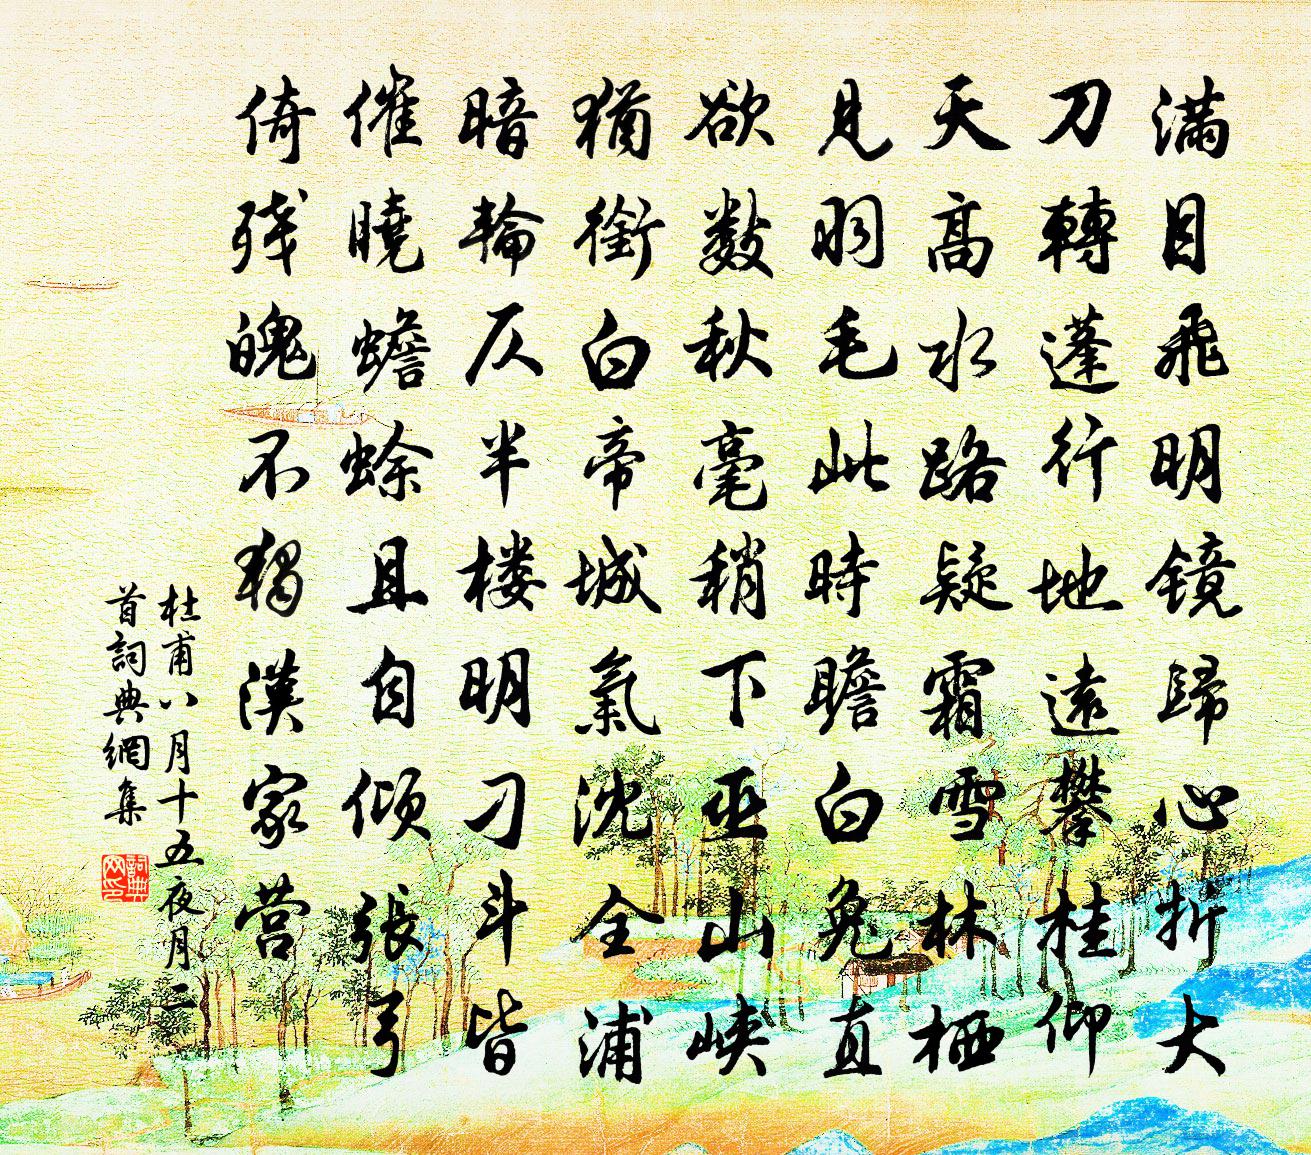 满目飛明镜歸心折大
刀轉蓬行地遠攀桂仰
天高水路疑霜雪林栖
見羽毛此時瞻白兔直
欲數秋毫稍下巫山峡
猶銜白帝城氣沈全浦
暗輪仄半楼明刁斗皆
催曉蟾蜍且自傾張弓
倚残魄不獨漢家营
杜甫八月十五夜月二
首詞典網集
詞典
网印